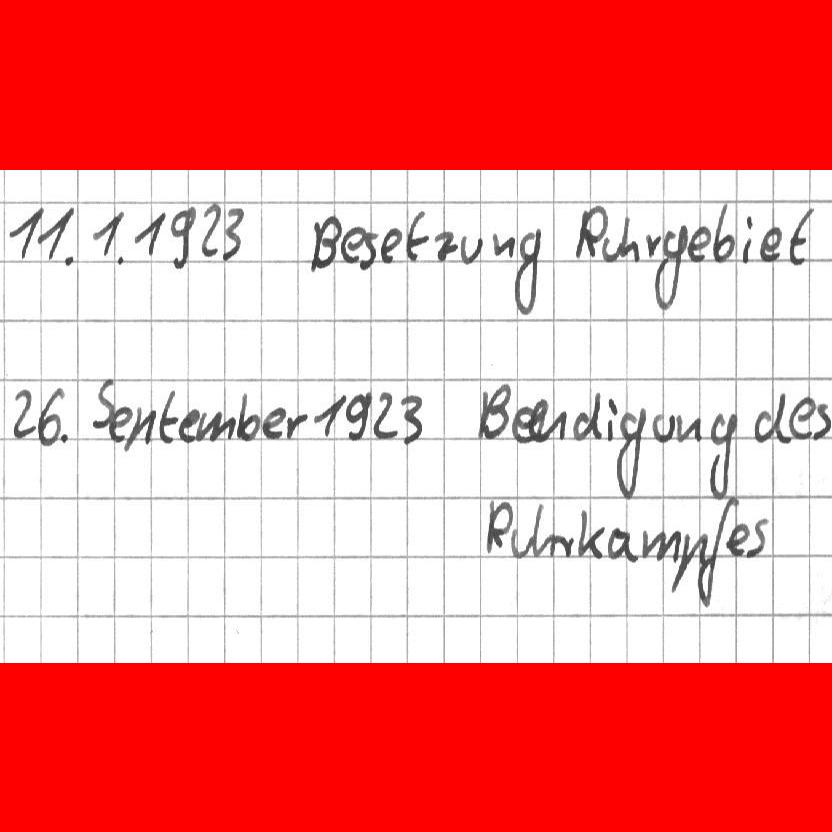 11.1.1923 Besetzung Ruhrgebiet
26. September 1923 Beendigung des
Ruhrkampfes